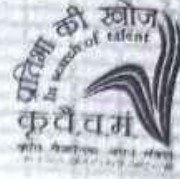 प्रतिभा की खोज
In search of talent
कृ.चै.च.मं.